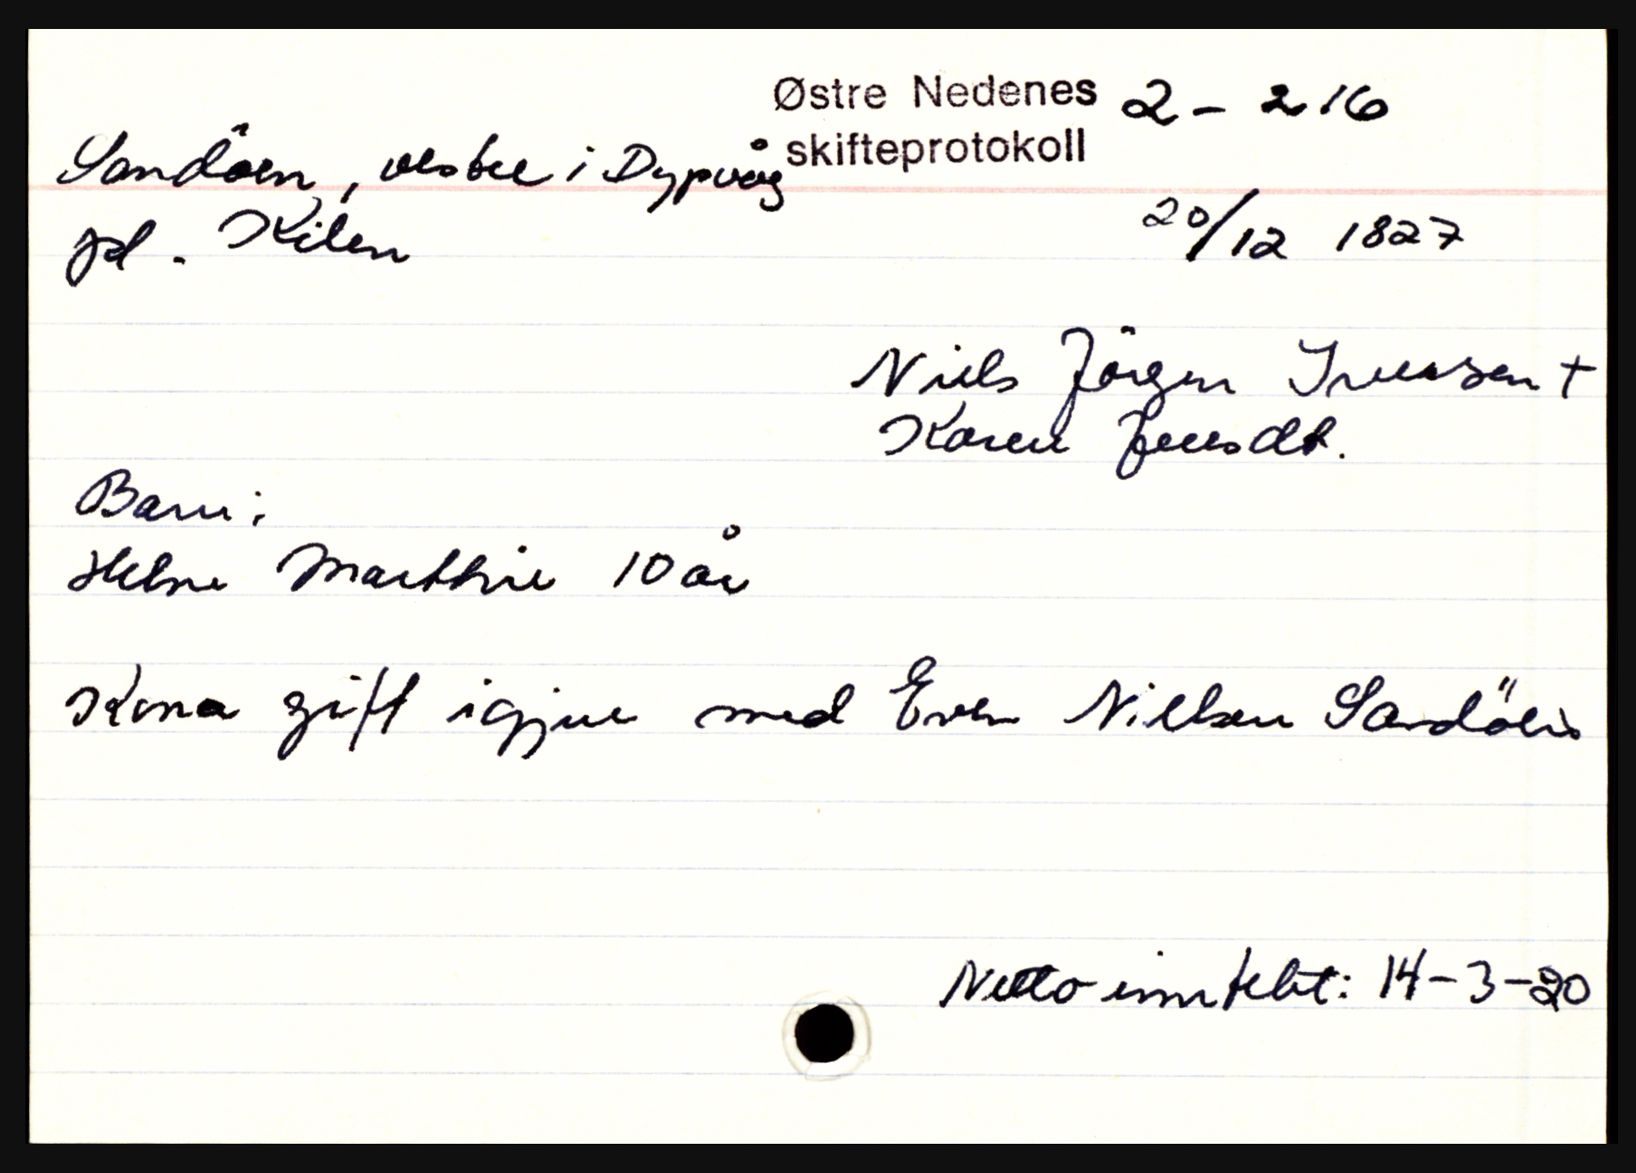 Østre Nedenes 2 - 216
skifteprotokoll
Sandöen, vestre i Dypvåg
pl. Kilen
20/12 1827
Niels Jörgen Iversen +
Karen Jensdt.
Barn:
Helene Marthine 10 år
Kona gift igjen med Even Nielsen Sandöen
Netto inntekt: 14-3-20